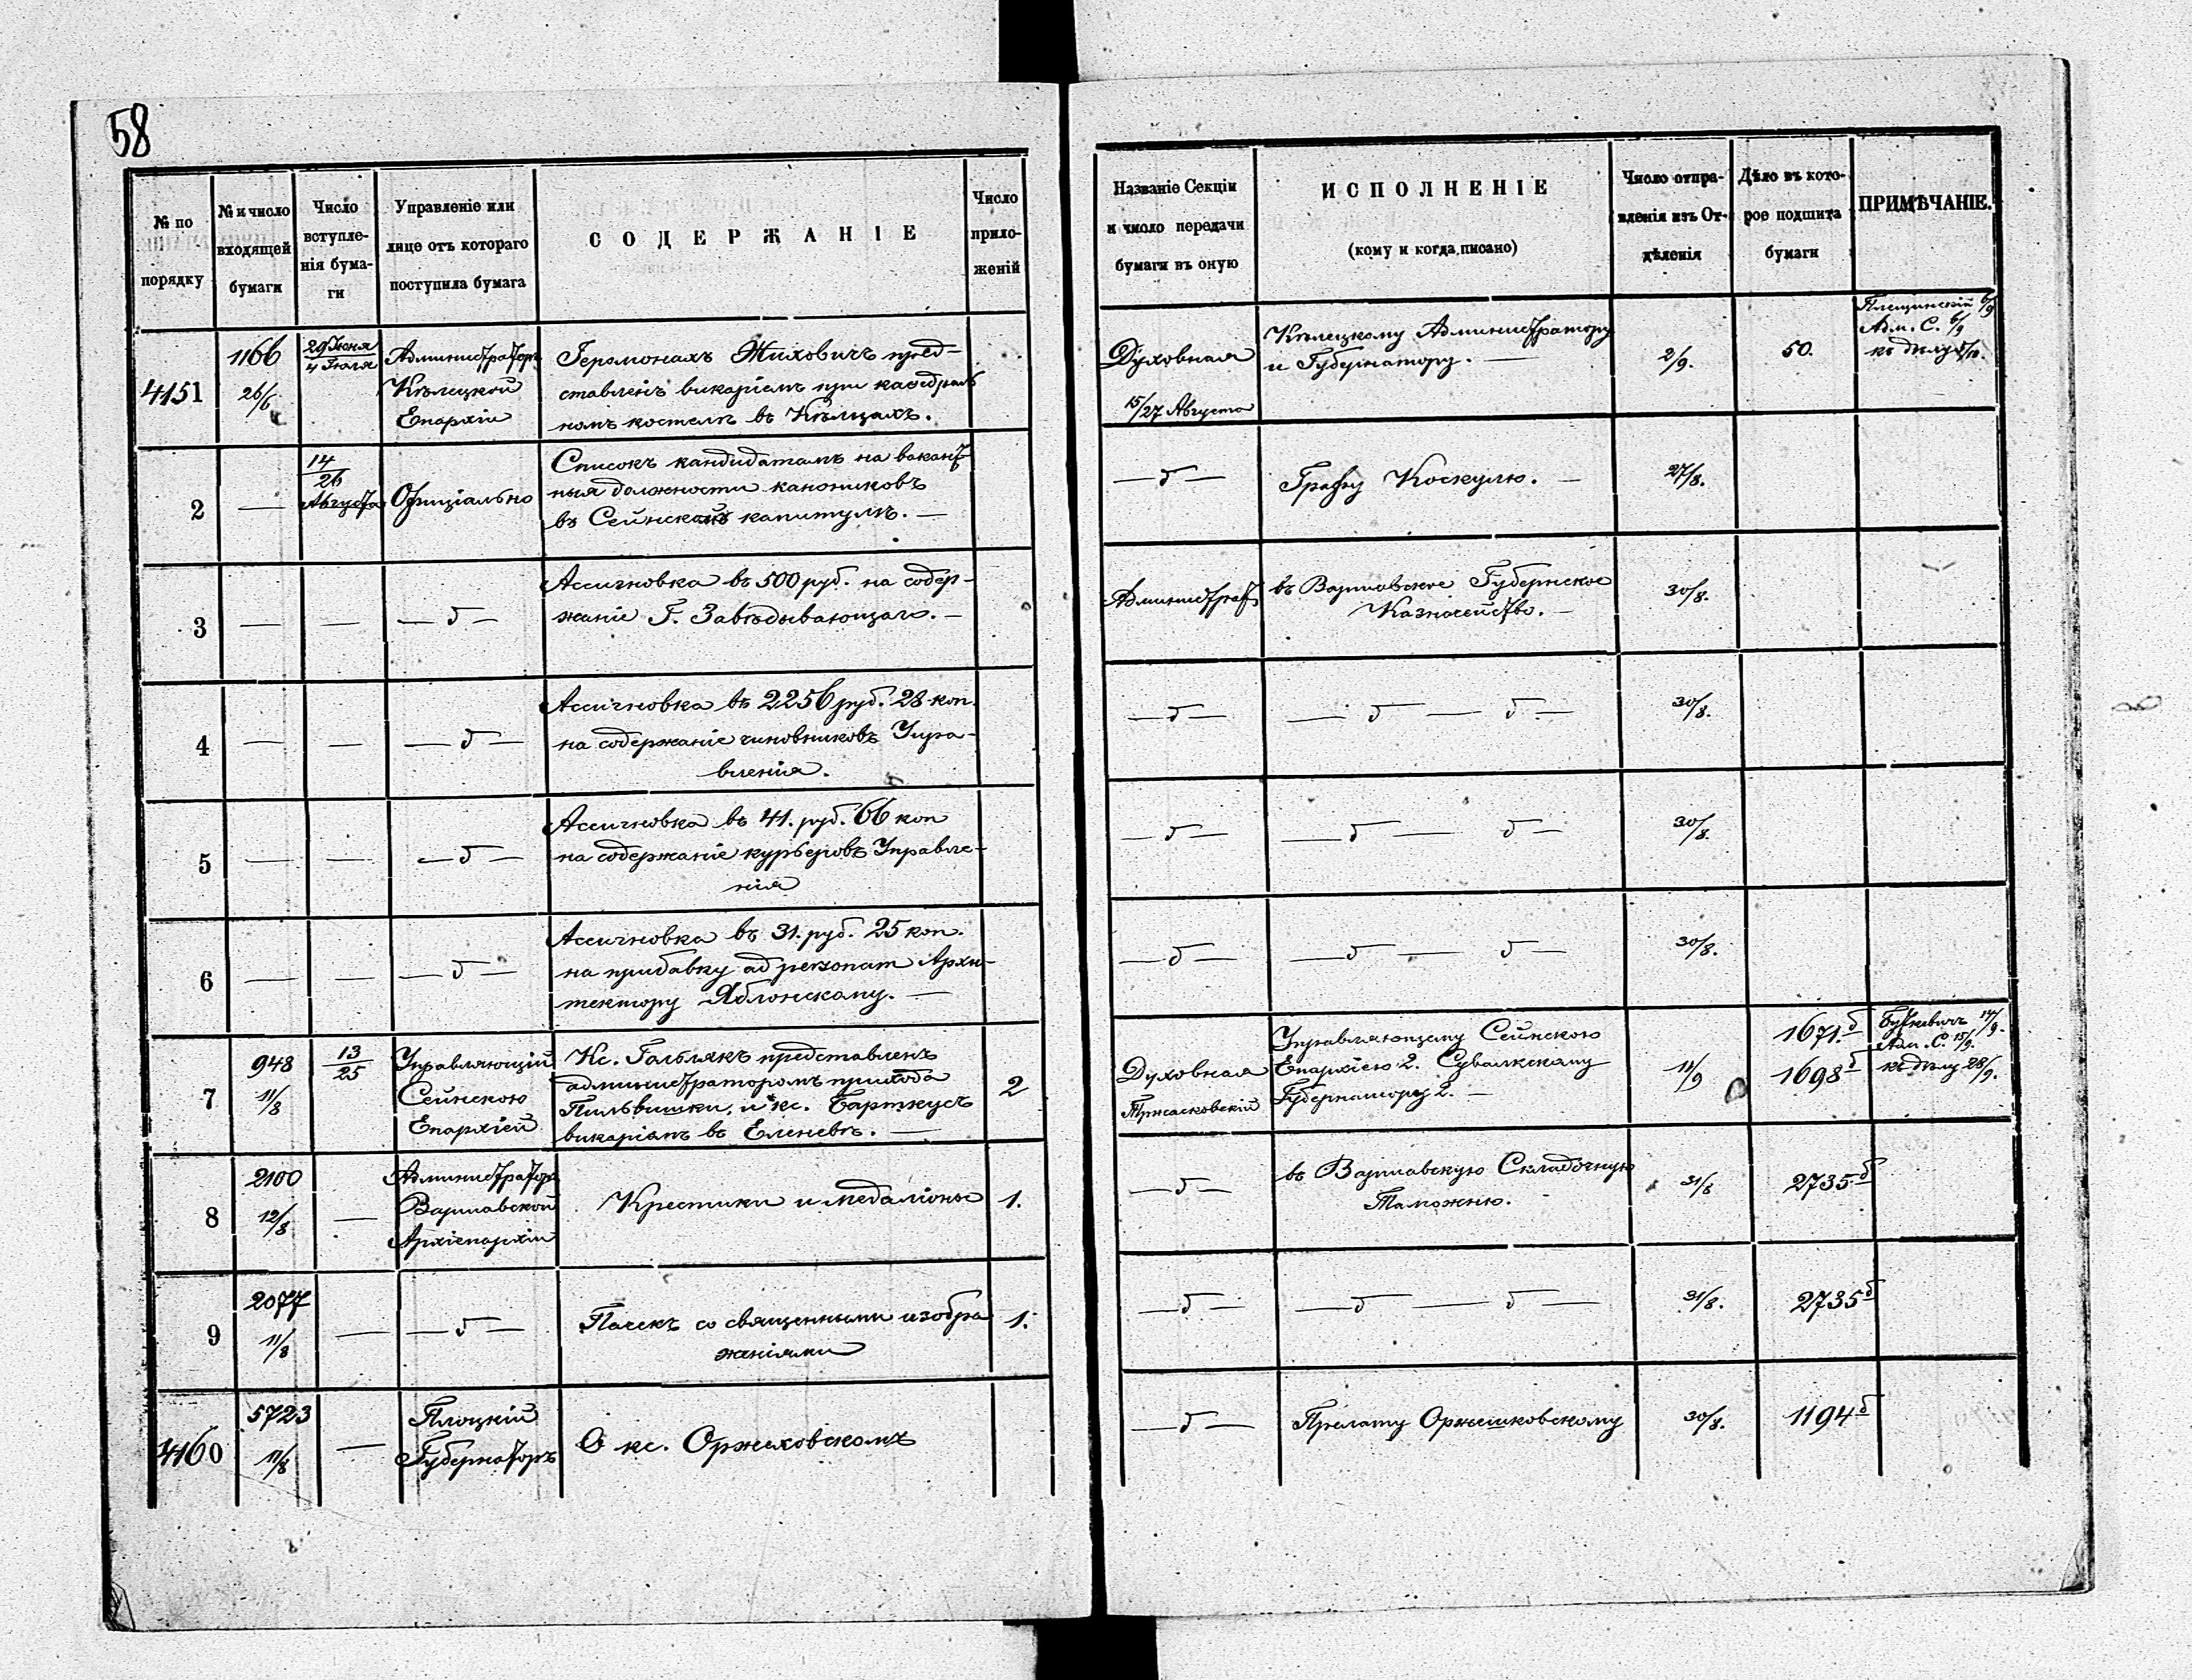 58
№ по порядку
№ и число входящей бумаги
Число вступле-нія бума-ги
Управленіе или лице отъ котораго поступила бумага
СОДЕРЖАНІЕ
Число прило-женій
Названіе Секціи и число передачи бумаги въ оную
ИСПОЛНЕНІЕ
(кому и когда писано)
Число отпра-вленія изъ От-дѣленія
Дѣло въ кото-рое подшита бумаги
ПРИМѢЧАНІЕ.
4151
1166
26/6
29 Іюня
4 Іюля
Администраторъ
Кѣлецкой
Епархіи
Геромонахъ Жиховичъ пред-
ставленъ викаріемъ при кафедраль
номъ костелѣ въ Кѣльцахъ.
Духовная
15/27 Августа
Кѣлецкому Администратору
и Губернатору. —
2/9.
50.
Плещинскій 6/9
Адм. С. 6/9
къ дѣлу
2
—
14
26
Августа
Офиціально
Списокъ кандидатамъ на вакант-
ныя должности канониковъ
въ Сейнской капитулѣ. —
— б —
Графу Коскулю. —
27/8.
3
—
—
— б —
Ассигновка въ 500 руб. на содер-
жаніе Г. Завѣдывающаго. —
Администрат
въ Варшавское Губернское
Казначейство. —
30/8.
4
—
—
— б —
Ассигновка въ 2256 руб. 28 коп.
на содержаніе чиновниковъ Упра-
вленія.
— б —
— б — б —
30/8.
5
—
—
— б —
Ассигновка въ 41. руб. 66 коп
на содержаніе курьеровъ Управле-
нія
— б —
— б — б —
30/8.
6
—
—
— б —
Ассигновка въ 31. руб. 25 коп.
на прибавку ad personam Архи-
тектору Яблонскому. —
— б —
— б — б —
30/8.
7
948
11/8
13
25
Управляющій
Сейнскою
Епархіей
Кс. Гальлякъ представленъ
администраторомъ прихода
Пильвишки, и кс. Барткусъ
викаріемъ въ Еленевѣ. —
2
Духовная
Тржасковскій
Управляющему Сейнскою
Епархіею 2. Сувалкскому
Губернатору 2. —
11/9
1671.б
1698 б
Буткевичъ 14/9.
Адм. С. 15/9.
къ дѣлу 28/9.
8
2100
12/8
—
Администраторъ
Варшавской
Архіепархіи
Крестики и медаліоны
1.
— б —
въ Варшавскую Складочную
Таможню.
31/8
2735 б
9
2077
11/8
—
— б —
Пачекъ со священными изобра
женіями
1.
— б —
— б — б —
31/8.
2735 б
4160
5723
11/8
—
Плоцкій
Губернаторъ
О кс. Оржеховскомъ
— б —
Прелату Оржешковскому
30/8.
1194 б